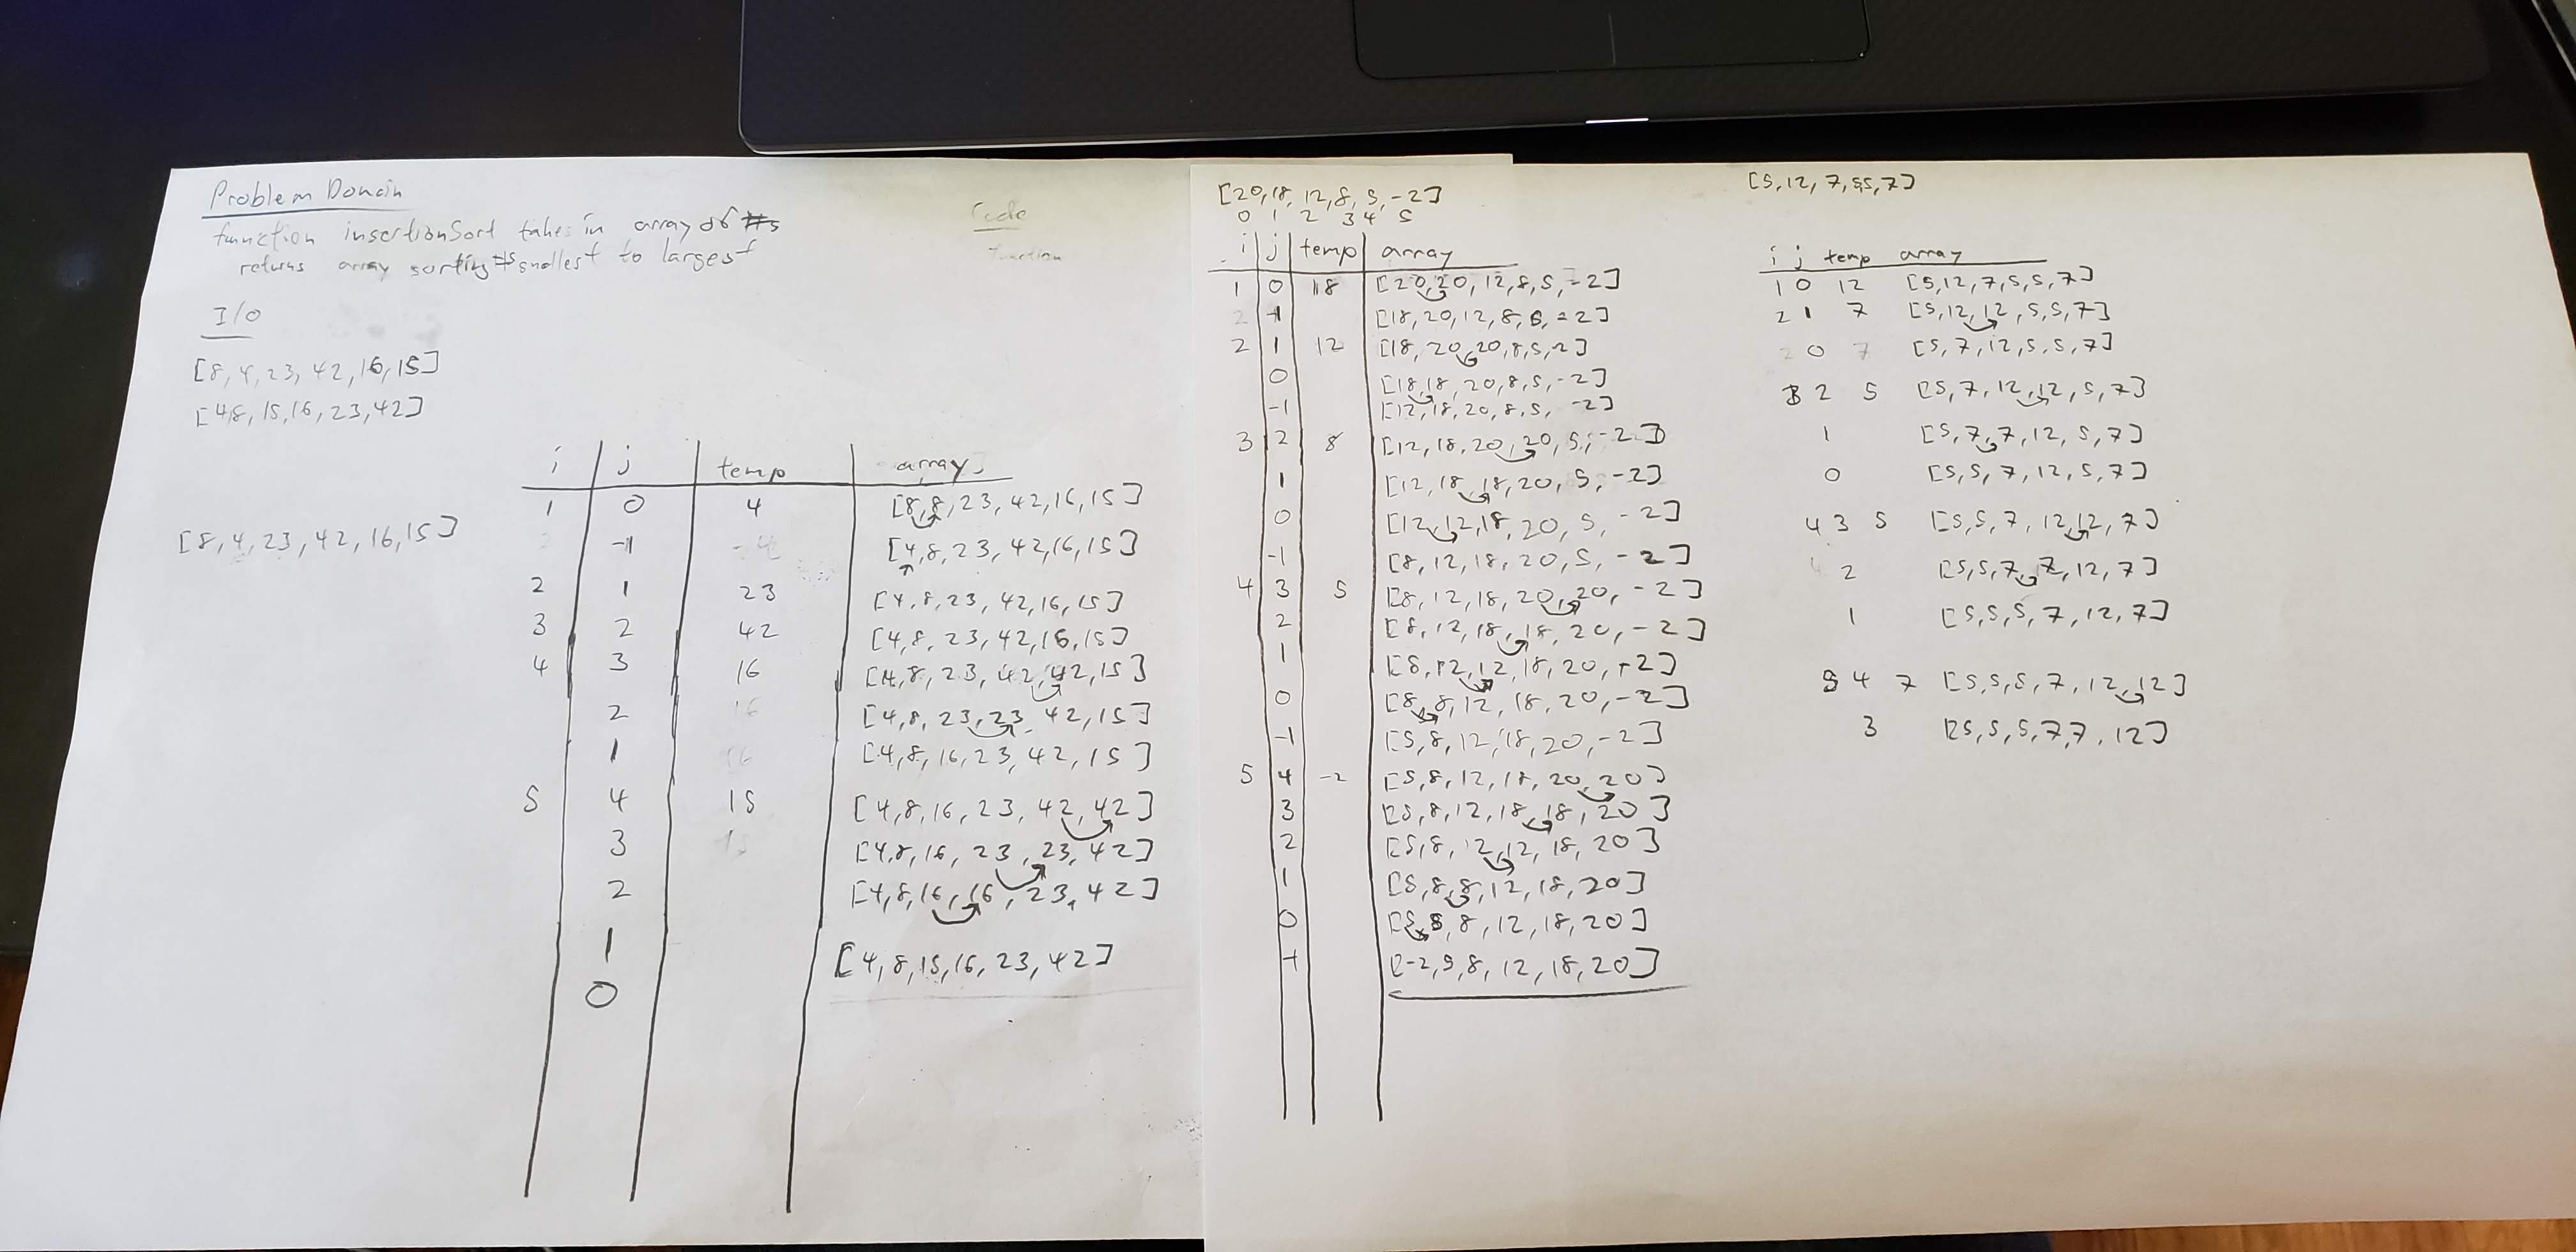 Problem Domain
function insertionSort takes in array of #s
returns array sorting #s smallest to largest
I/O
[8,4,23,42,16,15]
[4,8,15,16,23,42]
[8,4,23,42,16,15]
Code
function
i j temp array
1 0 4 [8,8,23,42,16,15]
-1 [4,8,23,42,16,15]
2 1 23 [4,8,23,42,16,15]
3 2 42 [4,8,23,42,16,15]
4 3 16 [4,8,23,42,42,15]
2 16 [4,8,23,23,42,15]
1 16 [4,8,16,23,42,15]
5 4 15 [4,8,16,23,42,42]
3 15 [4,8,16,23,23,42]
2 [4,8,16,16,23,42]
1 [4,8,15,16,23,42]
0
[20,18,12,8,5,-2]
0 1 2 3 4 5
i j temp array
1 0 18 [20,20,12,8,5,-2]
2 -1 [18,20,12,8,5,-2]
2 1 12 [18,20,20,8,5,-2]
0 [18,18,20,8,5,-2]
-1 [12,18,20,8,5,-2]
3 2 8 [12,18,20,20,5,-2]
1 [12,18,18,20,5,-2]
0 [12,12,18,20,5,-2]
-1 [8,12,18,20,5,-2]
4 3 5 [8,12,18,20,20,-2]
2 [8,12,18,18,20,-2]
1 [8,12,12,18,20,-2]
0 [8,8,12,18,20,-2]
-1 [5,8,12,18,20,-2]
5 4 -2 [5,8,12,18,20,20]
3 [5,8,12,18,18,20]
2 [5,8,12,12,18,20]
1 [5,8,8,12,18,20]
0 [5,5,8,12,18,20]
-1 [-2,5,8,12,18,20]
[5,12,7,5,5,7]
i j temp array
1 0 12 [5,12,7,5,5,7]
2 1 7 [5,12,12,5,5,7]
2 0 7 [5,7,12,5,5,7]
3 2 5 [5,7,12,12,5,7]
1 [5,7,7,12,5,7]
0 [5,5,7,12,5,7]
4 3 5 [5,5,7,12,12,7]
4 2 [5,5,7,7,12,7]
1 [5,5,5,7,12,7]
5 4 7 [5,5,5,7,12,12]
3 [5,5,5,7,7,12]